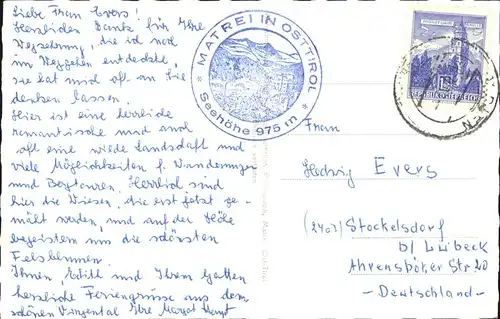 Liebe Frau Evers!
Herzlichen Dank für Ihre
Wegzehrung, die ich noch
im Weggehen entdeckte,
sie hat mich oft an Sie
denken lassen.
Hier ist eine herrliche
romantische und auch
oft eine wilde Landschaft und
viele Möglichkeiten f. Wanderungen
und Bergtouren. Herrlich sind
hier die Wiesen, die erst jetzt ge-
mäht werden, und auf der Höhe
begeistern uns die schönsten
Felsblumen.
Ihnen, Edith und Ihrem Gatten
herzliche Feriengrüsse aus dem
schönen Virgental Ihre Margot
MATREI IN OSTTIROL
Seehöhe 975 m
REPUBLIK ÖSTERREICH
Frau
Hedwig Evers
(2407) Stockelsdorf
b/ Lübeck
Ahrensböker Str 20
- Deutschland -